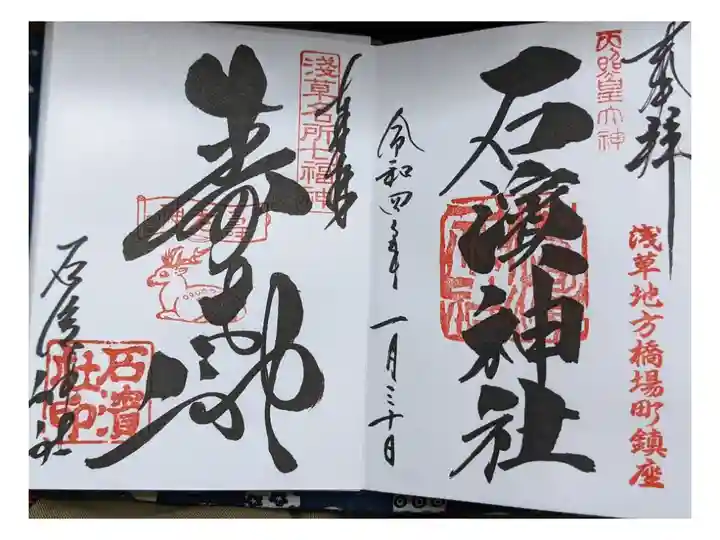 奉拝
天照皇大神
浅草地方橋場町鎮座
石濱神社
令和四年 一月三十日
奉拝
淺草名所七福神
壽老神
石濱神社
石濱
社印